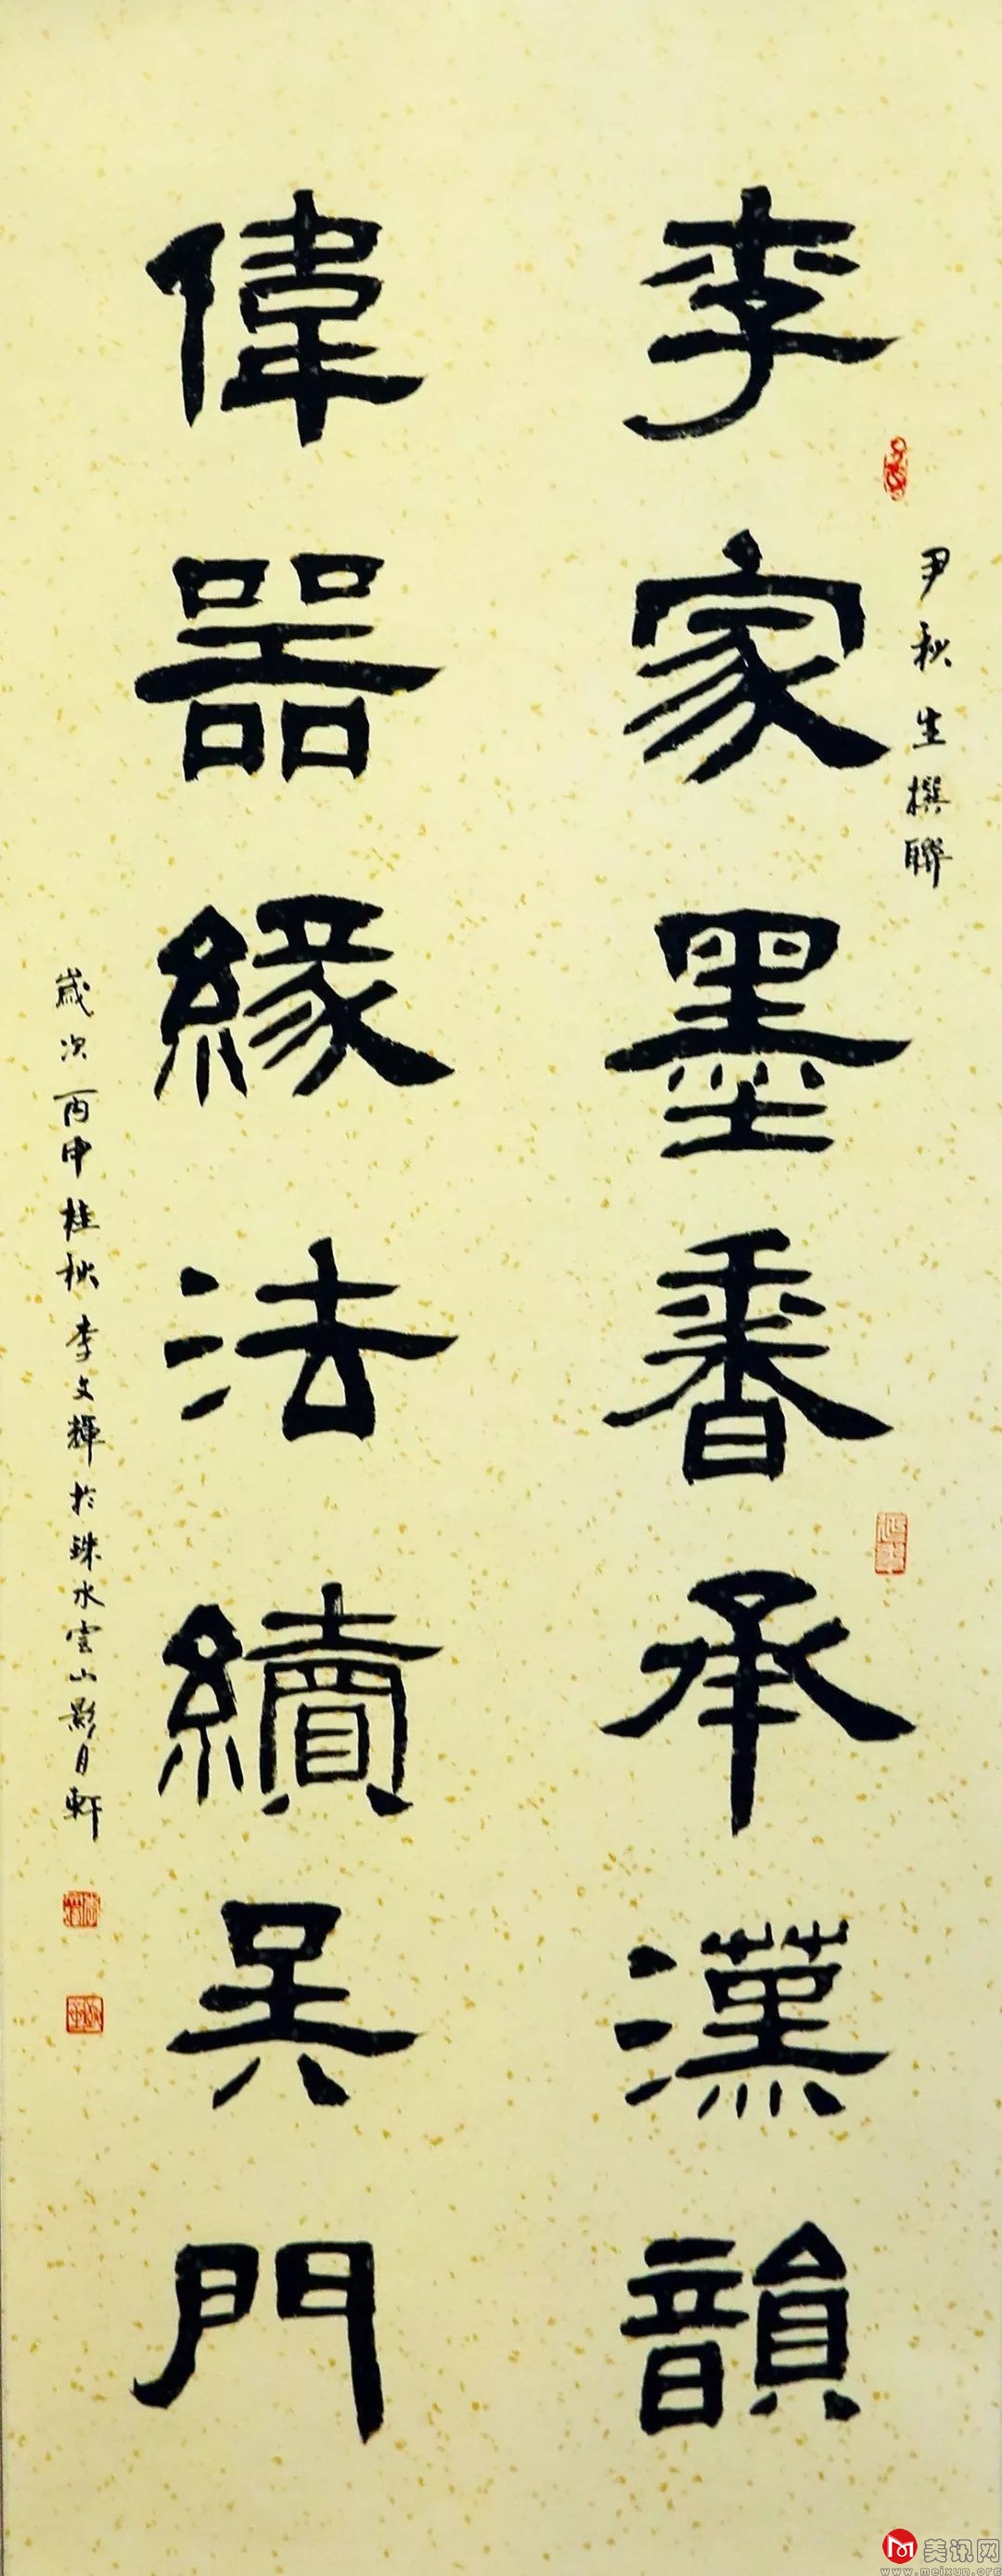 李家墨香承漢韻
尹秋生撰聯
偉器緣法續吳門
歲次丙申桂秋李文輝於珠水雲山影月軒
美讯网
www.meixun.org